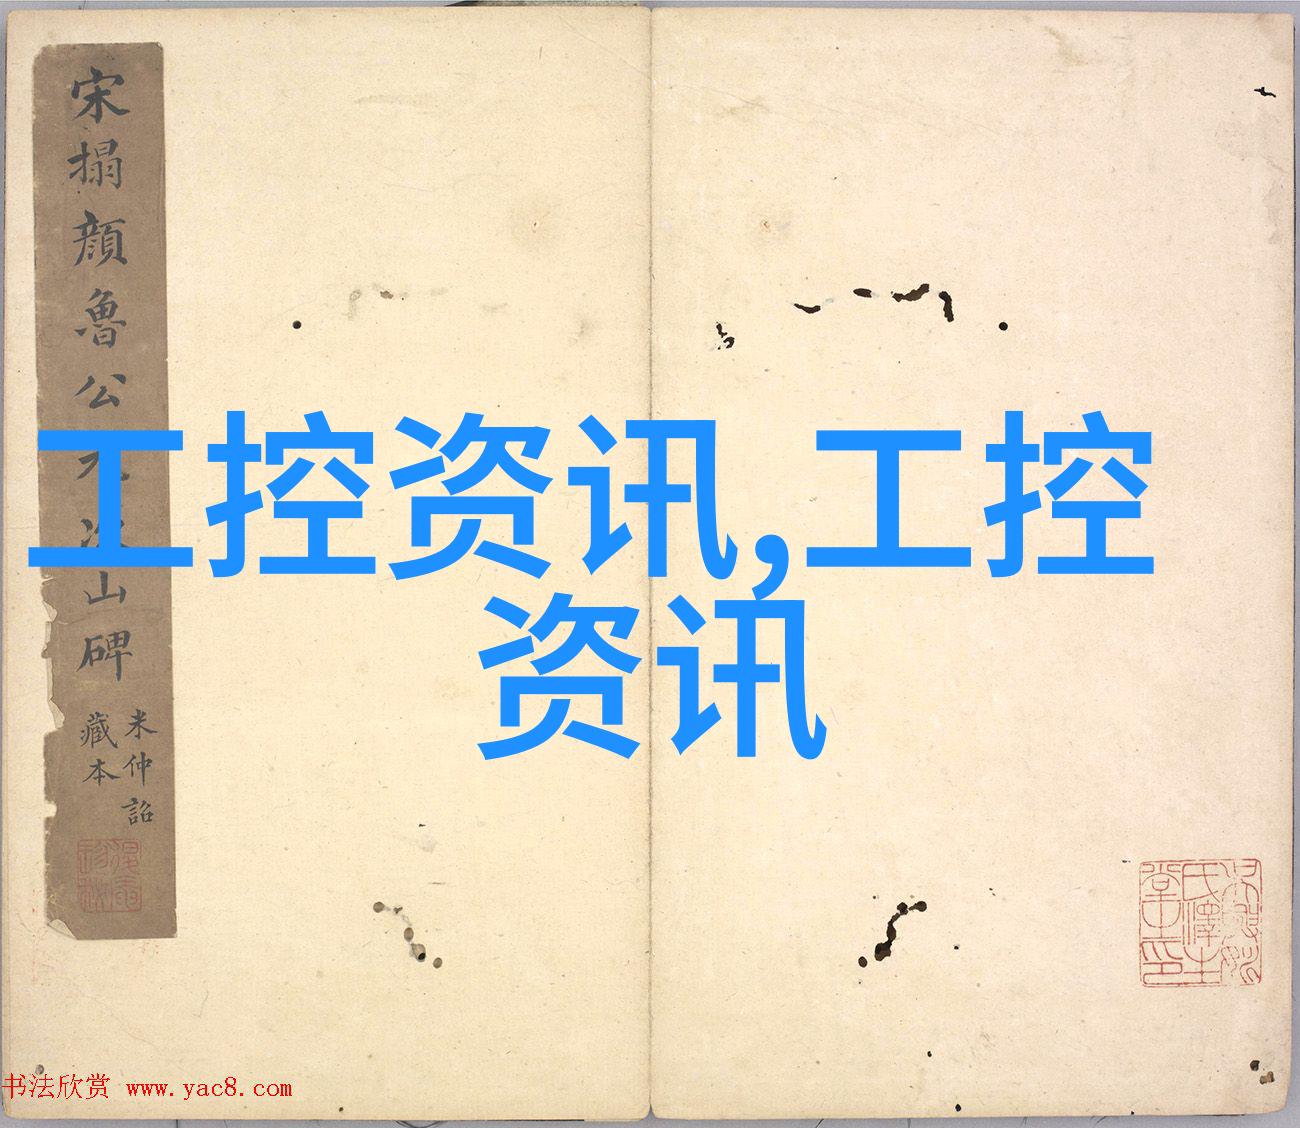 宋搨顏魯公
山碑
米仲詔
藏本
工控资讯,工控
资讯
书法欣赏 www.yac8.com